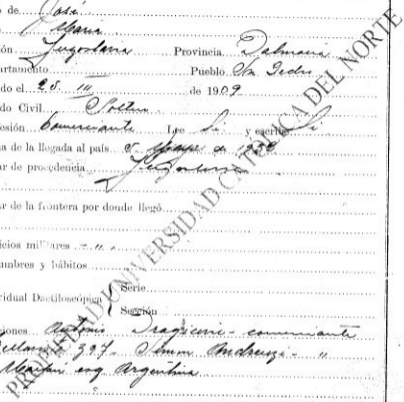 o de José
María
ión Jugoslavia Provincia Dalmacia
artamento Pueblo Sn Pedro
do el 25. III de 1909
do Civil Soltero
esión Comerciante Lee Sí y escribe Sí
a de la llegada al país 5. de 1930
ar de procedencia Jugoslavia
ar de la frontera por donde llegó
icios militares
umbres y hábitos
vidual Dactiloscópica Serie
Sección
ciones Antonio Dragicevic - comerciante
397 - Simon - "
esq Argentina
PROPIEDAD UNIVERSIDAD CATÓLICA DEL NORTE